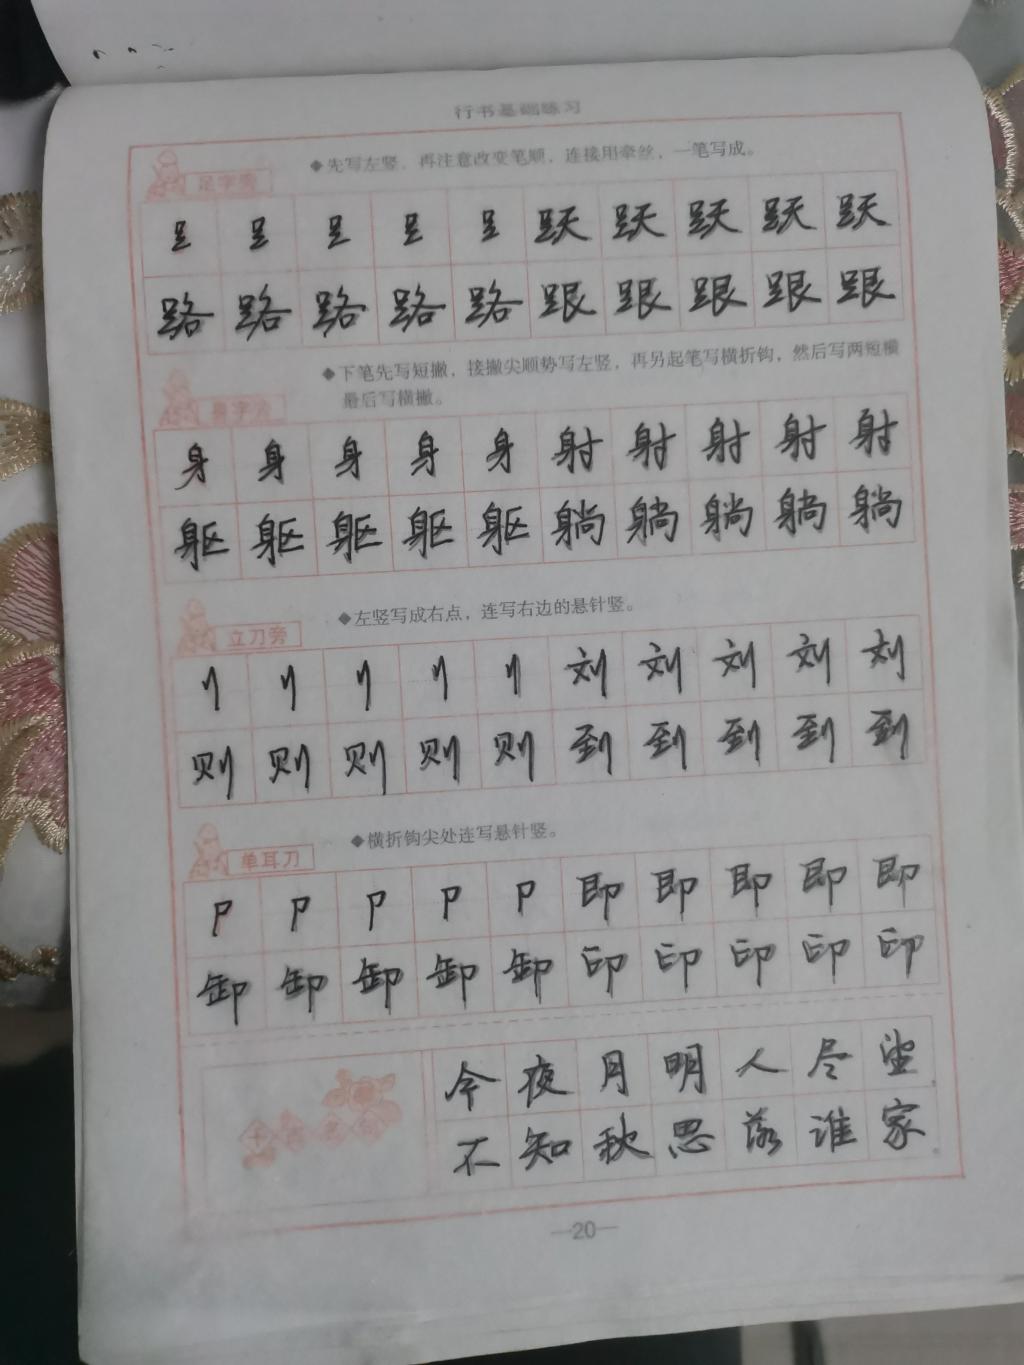 行书基础练习
足字旁
◆先写左竖，再注意改变笔顺，连接用牵丝，一笔写成。
𧾷 𧾷 𧾷 𧾷 𧾷 跃 跃 跃 跃 跃
路 路 路 路 路 跟 跟 跟 跟 跟
身字旁
◆下笔先写短撇，接撇尖顺势写左竖，再另起笔写横折钩，然后写两短横
最后写横撇。
身 身 身 身 身 射 射 射 射 射
躯 躯 躯 躯 躯 躺 躺 躺 躺 躺
立刀旁
◆左竖写成右点，连写右边的悬针竖。
刂 刂 刂 刂 刂 刘 刘 刘 刘 刘
则 则 则 则 则 到 到 到 到 到
单耳刀
◆横折钩尖处连写悬针竖。
卩 卩 卩 卩 卩 即 即 即 即 即
卸 卸 卸 卸 卸 印 印 印 印 印
千古名句
今 夜 月 明 人 尽 望
不 知 秋 思 落 谁 家 。
—20—